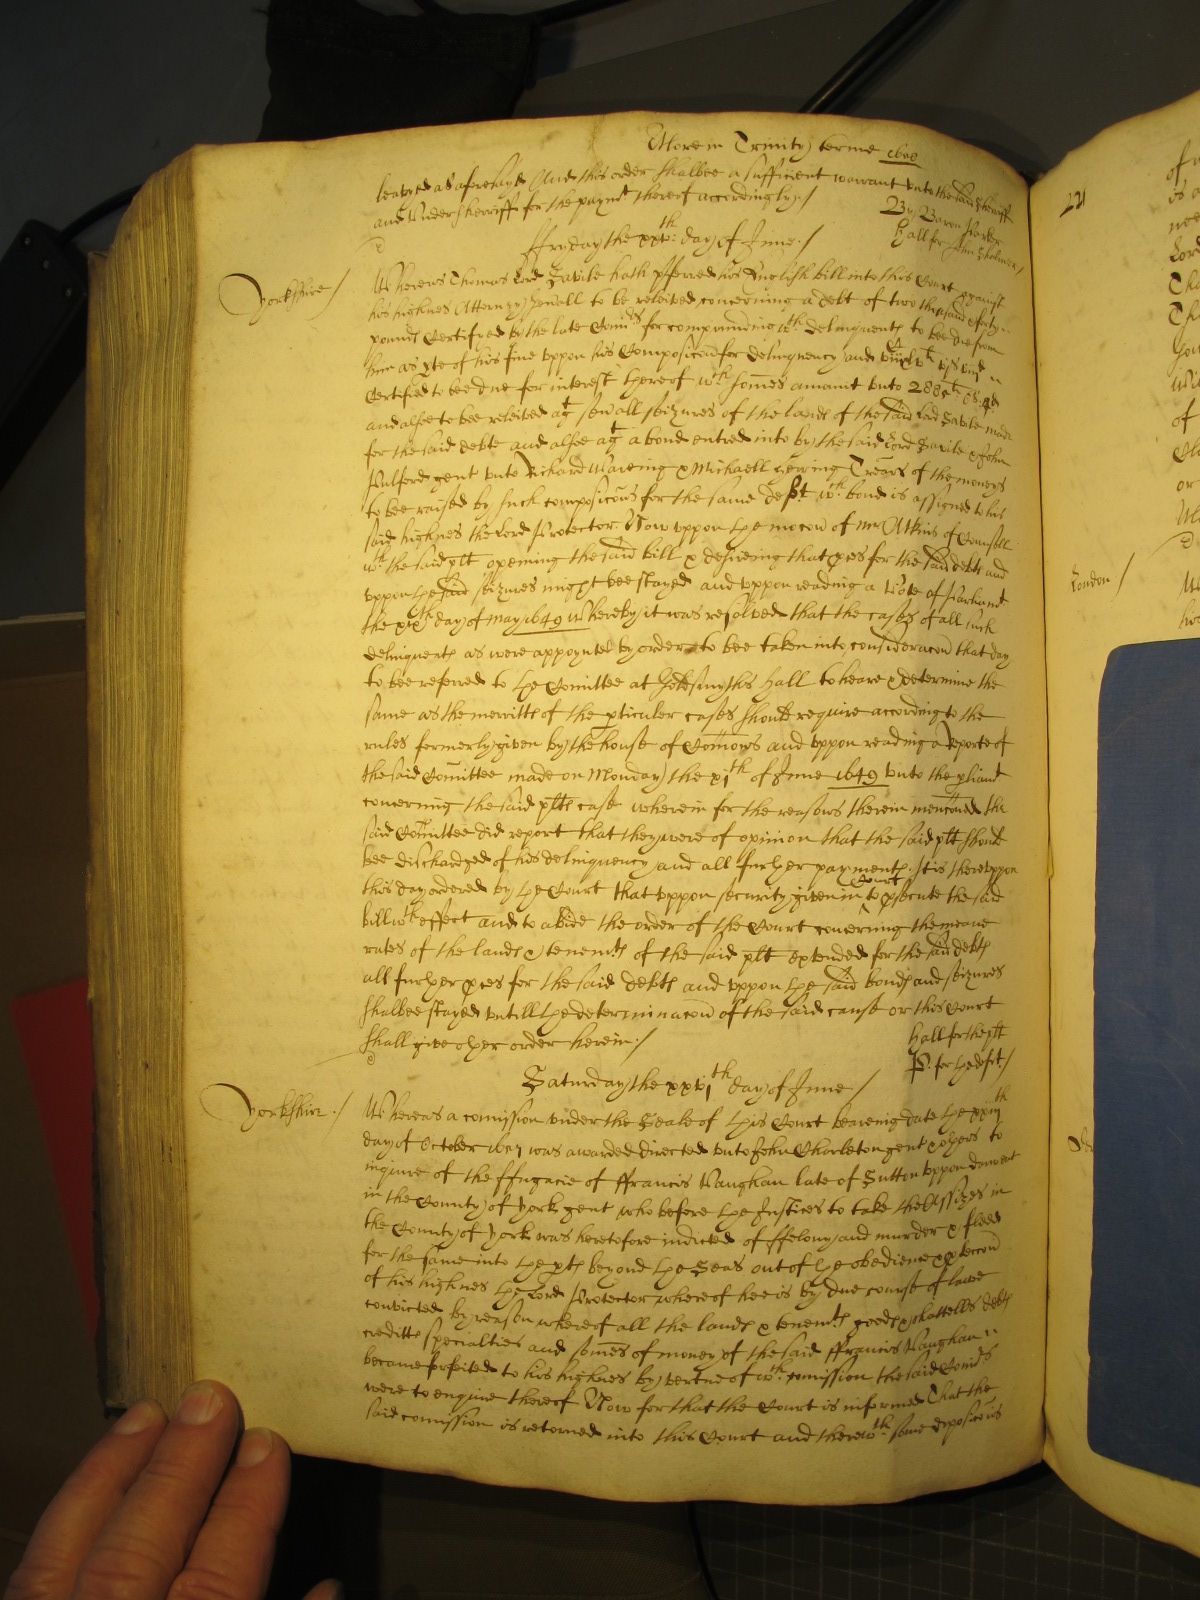 More in Trinity terme 1658
leavyed as aforesayd And this order shalbee a sufficient warrant unto the said Sheriff
and Undersherriff for the paymt thereof accordingly /
By Baron Parker
Hall for John
ffryday the xxvth day of June /
Yorkshire /
Whereas Thomas Lord Savile hath pferred his English bill into this Court against
his highnes Attorney generall to be releived concerning a debt of two thousand
pounds Certifyed by the late Comrs for compounding wth delinquents to bee due from
him as pte of his fine uppon his Composicon for delinquency and
Certified to bee due for interest thereof wch somes amount unto
and alsoe to bee releived agt sevall seizures of the lands of the said Lord Savile made
for the said debte and alsoe agt a bond entred into by the said Lord Savile & John
Pulford gent unto Richard Wareing & Michaell Herring Trears of the moneys
to bee raised by such composicons for the same debt wch bond is assigned to his
said highnes the Lord Protector. Now uppon the mocon of mr Atkins of Counsell
wth the said plt opening the said bill & desireing that pces for the said debts and
uppon the said seizures might bee stayed and uppon reading a Vote of Parliamt
the xxixth day of May 1649 Whereby it was resolved that the cases of all such
delinquents as were appoynted by order to bee taken into consideracon that day
to bee referred to the Comittee at Goldsmyths hall to heare & determine the
same as the merritts of the pticuler cases should require according to the
rules formerly given by the house of Comons and uppon reading a Reporte of
the said Comittee made on Monday the xith of June 1649 unto the pliamt
concerning the said plts case wherein for the reasons therein menconed the
said Comittee did report that they were of opinion that the said plt should
bee discharged of his delinquency and all further payments. It is thereuppon
this day ordered by the Court that uppon security given in Court to psecute the said
bill wth effect and to abide the order of the Court concerning the meane
rates of the lands & tenemts of the said plt extended for the said debts
all further pces for the said debts and uppon the said bonds and seizures
shalbee stayed untill the determinacon of the said cause or this Court
shall give other order herein /
Hall for the plt
P. for the defft /
Saturday the xxvith day of June /
Yorkshire /
Whereas a comission under the Seale of this Court beareing date the xxiijth
day of October 1657 was awarded directed unto John Charleton gent & others to
inquire of the ffugacie of ffrancis Vaughan late of Sutton uppon Darwent
in the County of York gent who before the Justices to take the Assizes in
the County of York was heretofore indicted of ffelony and murder & fleed
for the same into the pts beyond the Seas out of the obedience & pteccon
of his highnes the Lord Protector whereof hee is by due course of lawe
convicted by reason whereof all the lands & tenemts goods & chattells debts
creditts specialties and somes of money of the said ffrancis Vaughan
became forfeited to his highnes by vertue of wch comission the said Comrs
were to enquire thereof Now for that the Court is informed That the
said comission is retorned into this Court and therewth some deposicons
221
London /